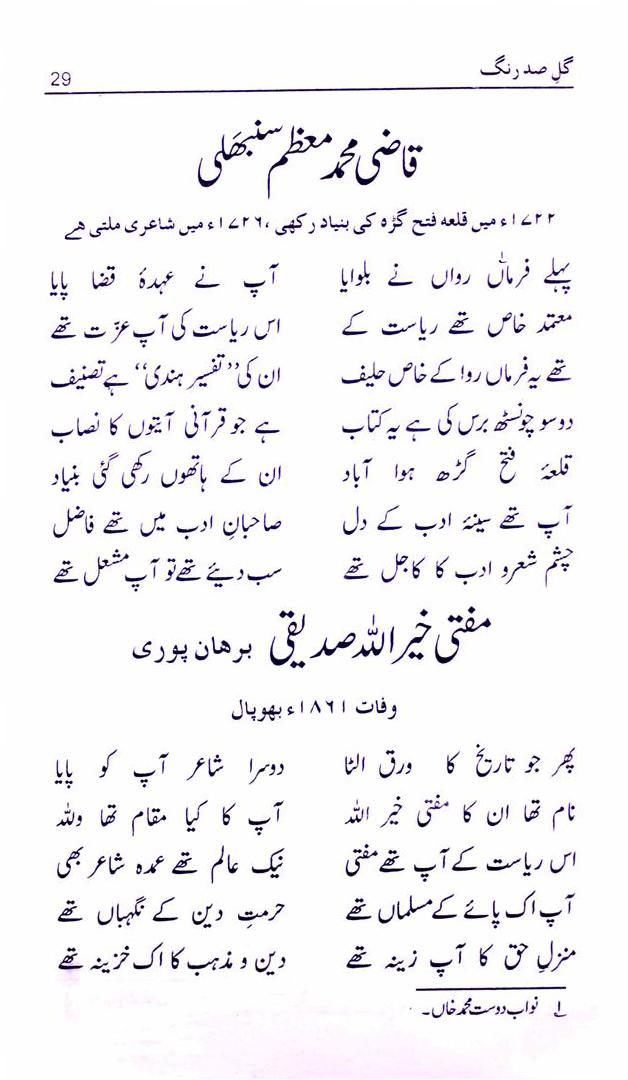 گلِ صد رنگ 29
قاضی محمد معظم سنبھلی
۱۷۲۲ء میں قلعہ فتح گڑہ کی بنیاد رکھی، ۱۷۲۶ء میں شاعری ملتی ہے
پہلے فرماں رواں نے بلوایا آپ نے عہدۂ قضا پایا
معتمد خاص تھے ریاست کے اس ریاست کی آپ عزّت تھے
تھے یہ فرماں روا کے خاص حلیف ان کی ”تفسیر ہندی“ ہے تصنیف
دوسو چونسٹھ برس کی ہے یہ کتاب ہے جو قرآنی آیتوں کا نصاب
قلعۂ فتح گڑھ ہوا آباد ان کے ہاتھوں رکھی گئی بنیاد
آپ تھے سینۂ ادب کے دل صاحبانِ ادب میں تھے فاضل
چشم شعرو ادب کا کاجل تھے سب دیئے تھے تو آپ مشعل تھے
مفتی خیر اللہ صدیقی برھان پوری
وفات ۱۸۶۱ء بھوپال
پھر جو تاریخ کا ورق الٹا دوسرا شاعر آپ کو پایا
نام تھا ان کا مفتی خیر اللہ آپ کا کیا مقام تھا وللہ
اس ریاست کے آپ تھے مفتی نیک عالم تھے عمدہ شاعر بھی
آپ اک پائے کے مسلماں تھے حرمتِ دین کے نگہباں تھے
منزلِ حق کا آپ زینہ تھے دین و مذہب کا اک خزینہ تھے
۱ نواب دوست محمد خاں۔